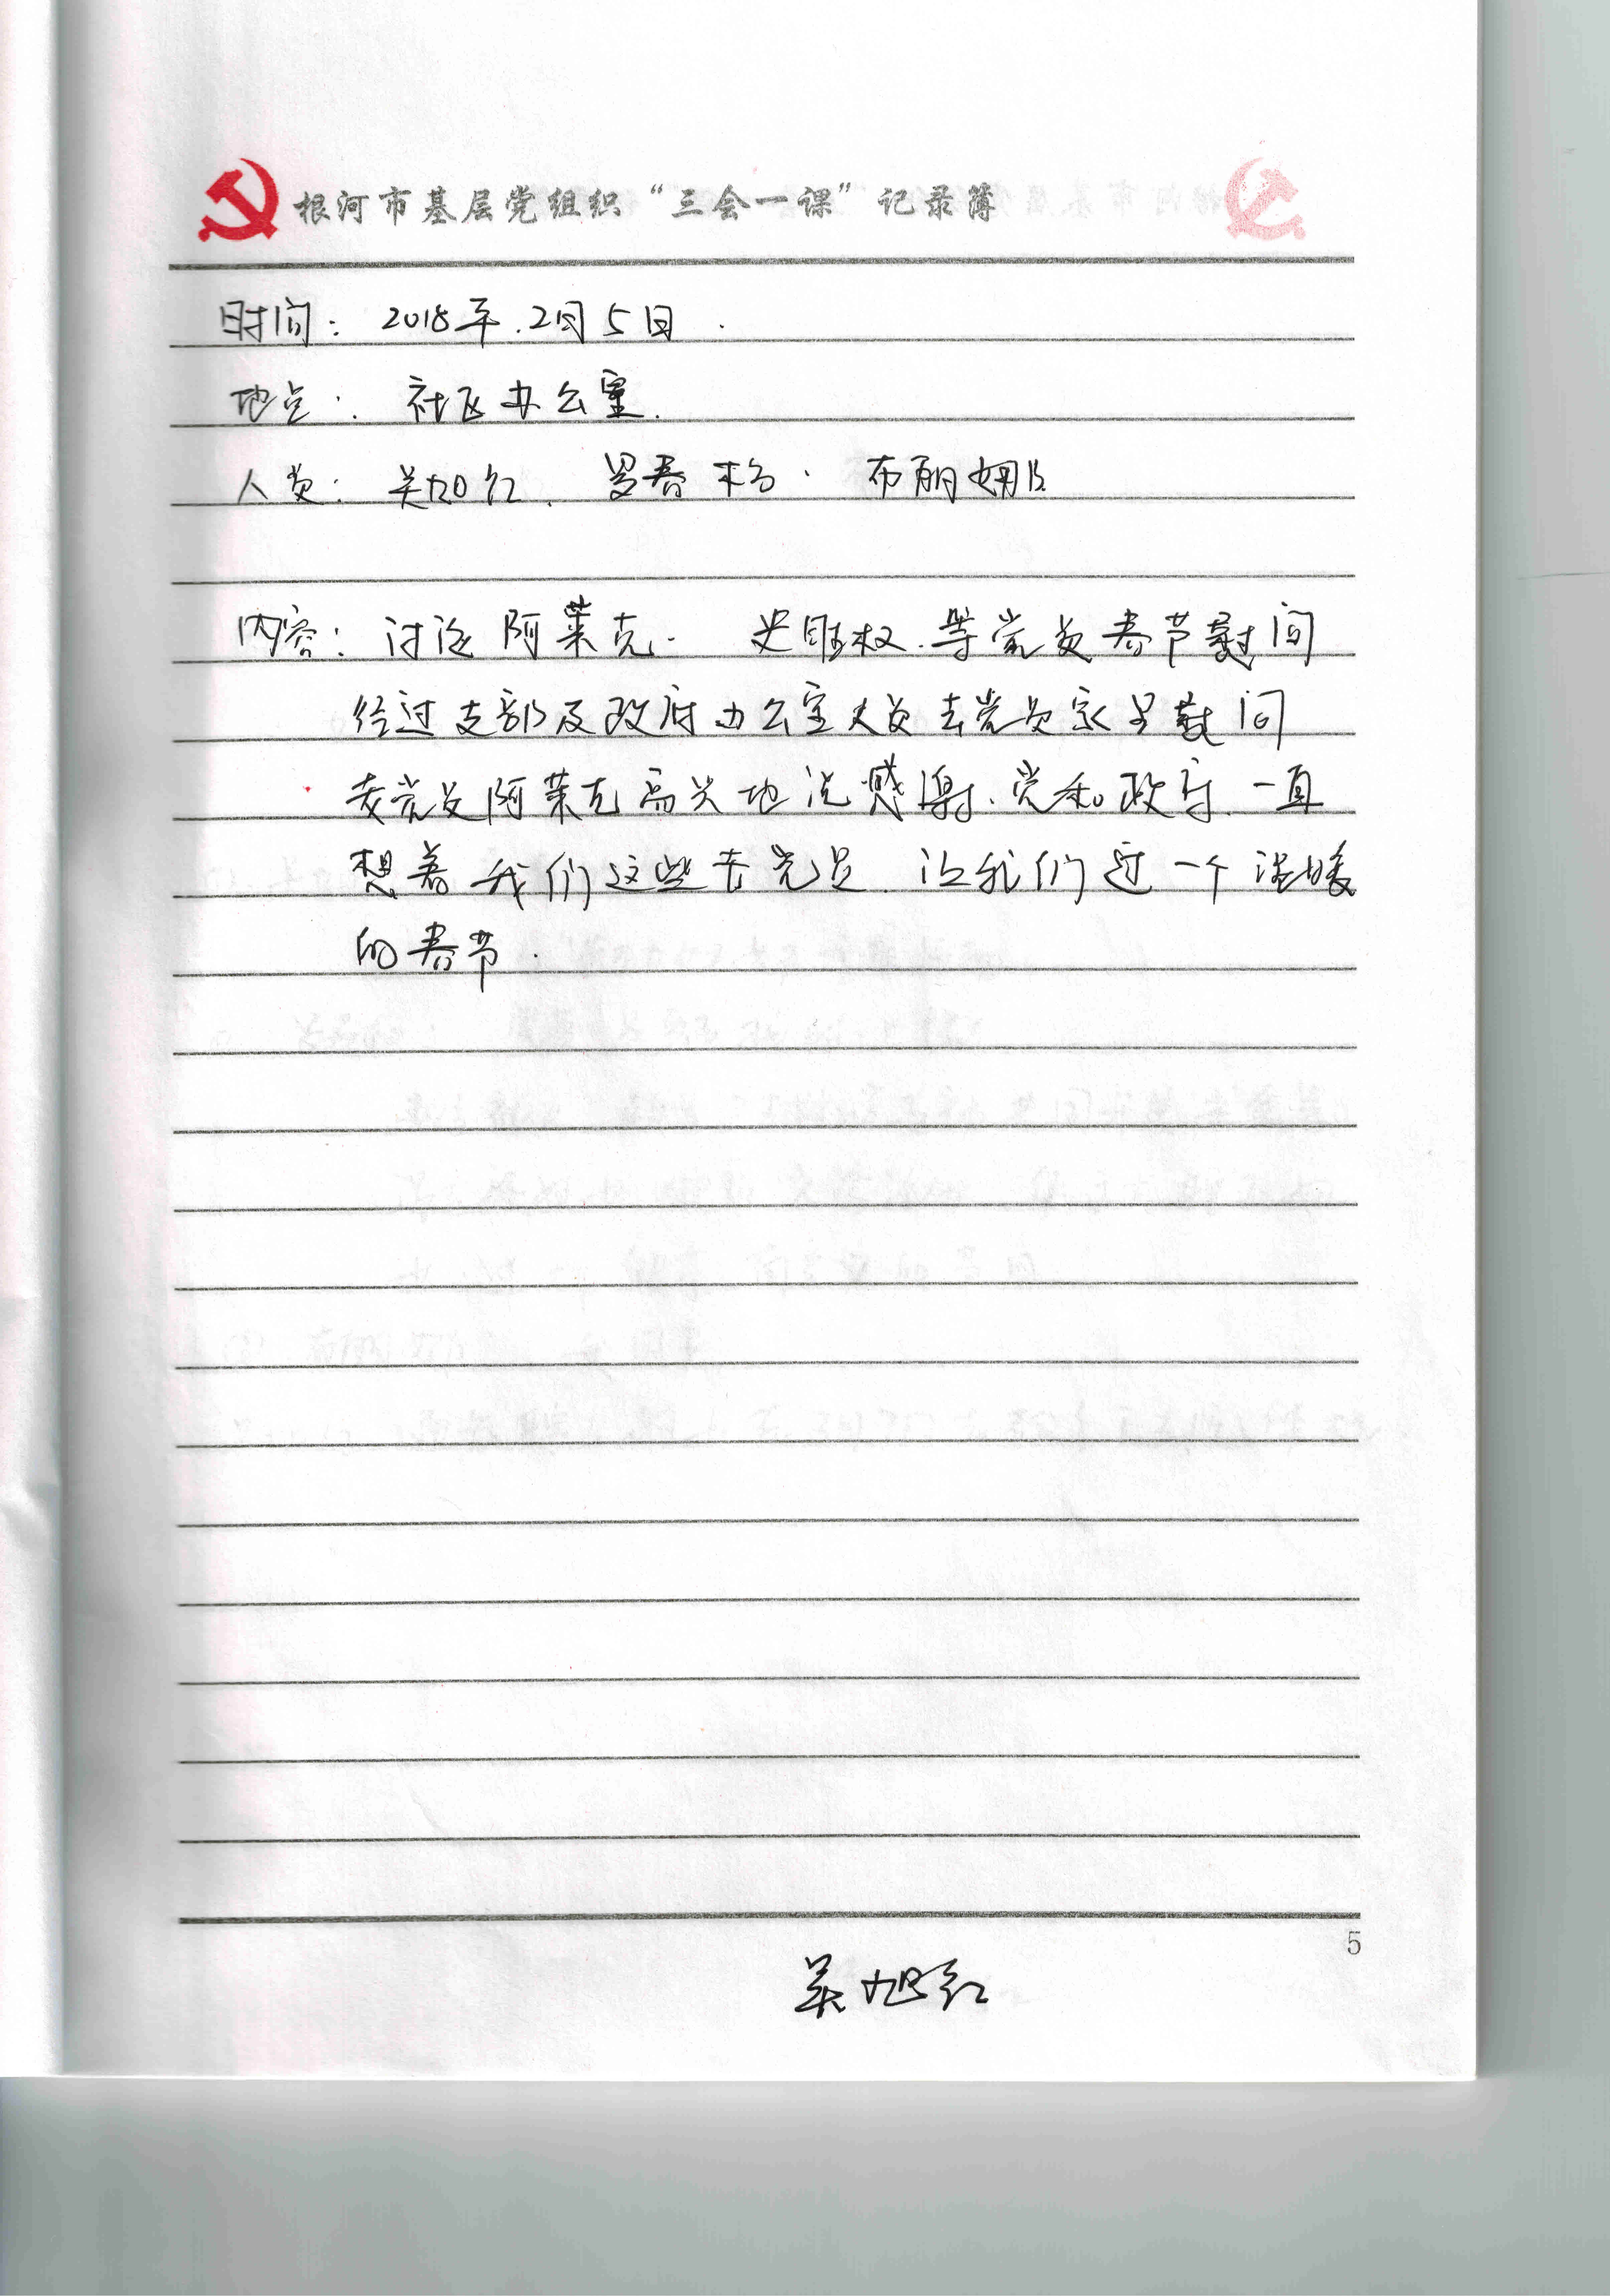 根河市基层党组织“三会一课”记录簿
时间：2018年.2月5日.
地点：社区办公室.
人员：吴旭红.
内容：讨论阿莱克. 史胜权.等党员春节慰问
经过支部及政府办公室人员去党员家里慰问
老党员阿莱克高兴地说感谢.党和政府.一直
想着我们这些老党员.让我们过一个温暖
的春节.
5
吴旭红